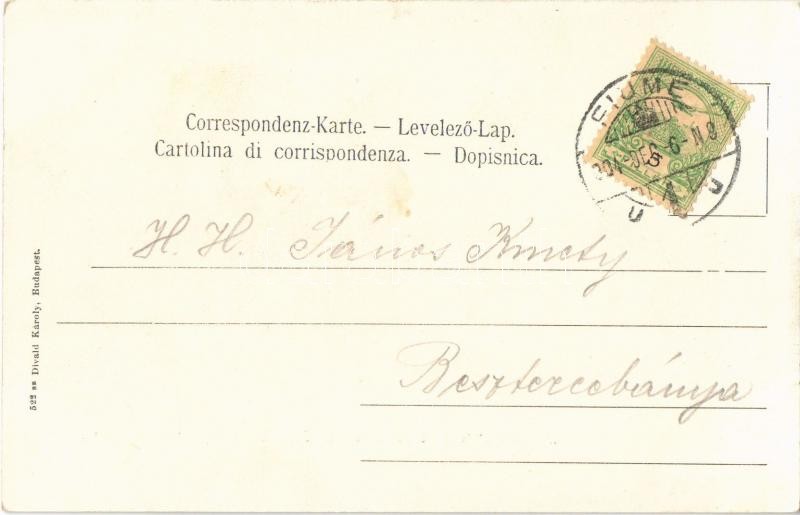 Correspondenz-Karte. — Levelező-Lap.
Cartolina di corrispondenza. — Dopisnica.
FIUME
H. H. János Kmety
Besztercebánya
522 sz Divald Károly, Budapest.